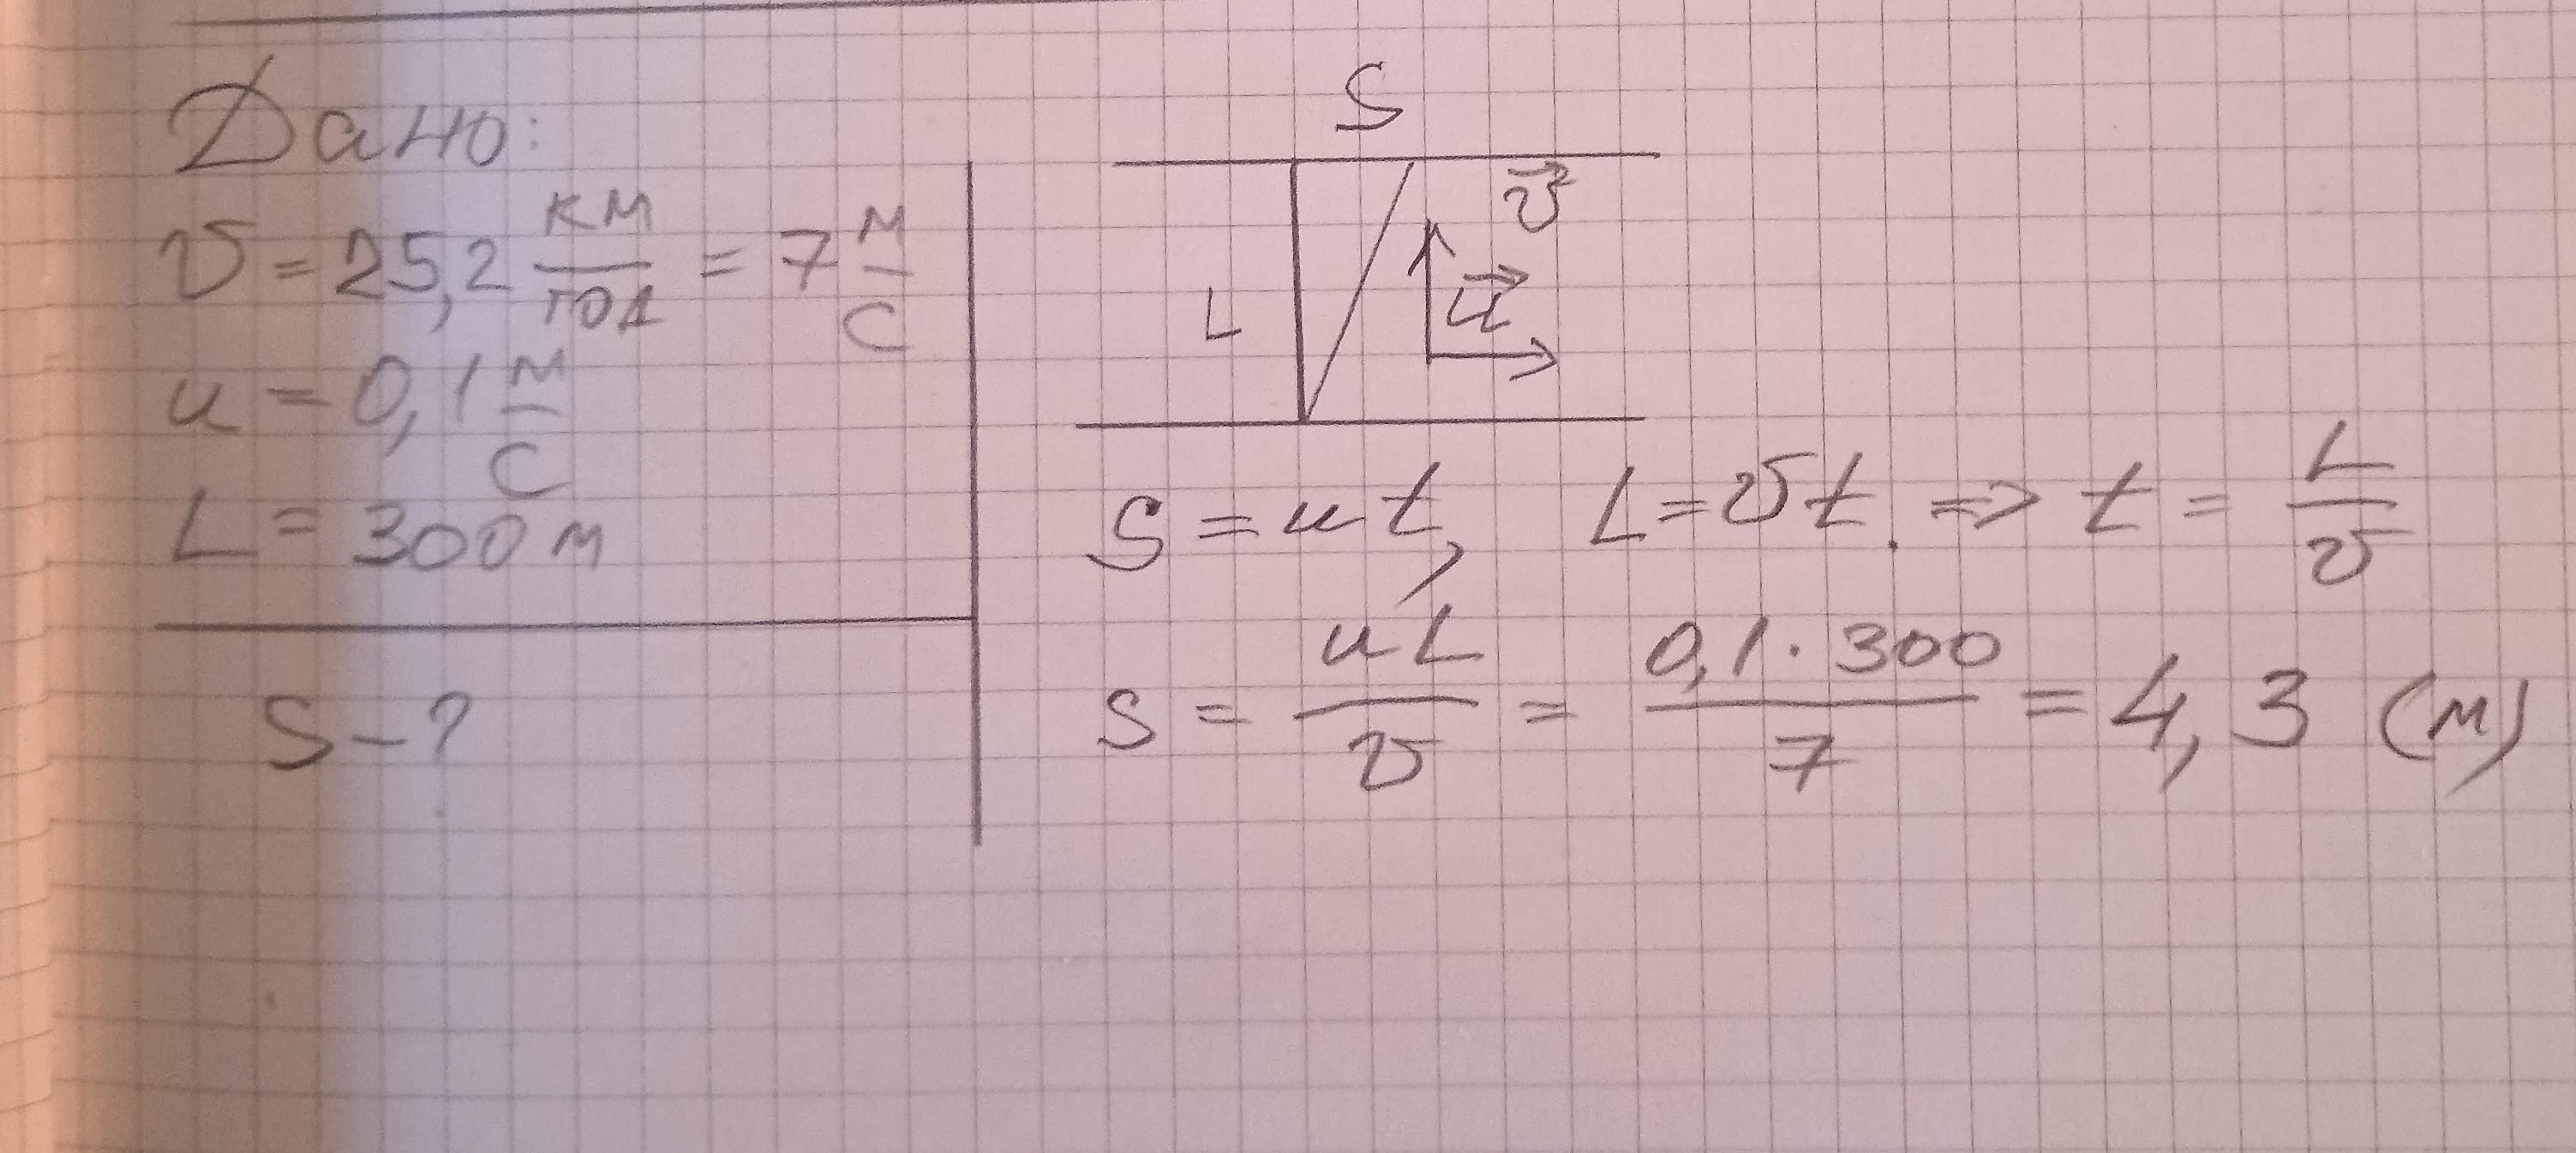 Дано:
v = 25,2 км/год = 7 м/с
u = 0,1 м/с
L = 300 м
S - ?
S
v⃗
L
u⃗
S = ut, L = vt. => t = L/v
S = uL/v = 0,1 · 300/7 = 4,3 (м)